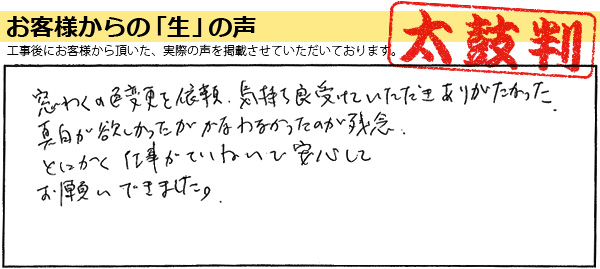 お客様からの「生」の声
太鼓判
工事後にお客様から頂いた、実際の声を掲載させていただいております。
窓わくの色変更を依頼、気持ち良受けていただきありがたかった
真白が欲しかったがかなわなかったのが残念、
とにかく仕事がていねいで安心して
お願いできました。